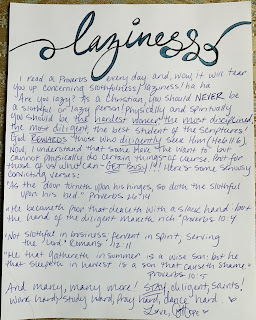 laziness
I read a Proverbs every day and, wow, it will tear
you up concerning slothfulness/laziness! ha ha
Are you lazy? As a Christian, you should NEVER be
a slothful or lazy person! Physically and spiritually
you should be the hardest worker, the most disciplined,
the most diligent, the best student of the Scriptures!
God REWARDS those who diligently seek Him (Heb 11:6).
Now, I understand that some have the "want to" but
cannot physically do certain things of course. But for those
of us who can - GET BUSY!!! Here's some seriously
convicting verses:
"As the door turneth upon his hinges, so doth the slothful
upon his bed." Proverbs 26:14
"He becometh poor that dealeth with a slack hand: but
the hand of the diligent maketh rich" Proverbs 10:4
"Not slothful in business; fervent in spirit; serving
the Lord" Romans 12:11
"He that gathereth in summer is a wise son: but he
that sleepeth in harvest is a son that causeth shame."
Proverbs 10:5
And many, many more! Stay diligent, saints!
Work hard, study hard, pray hard, dance hard
Love,